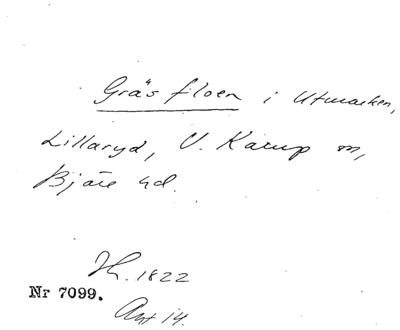 Gräs floen i Utmarken,
Lillaryd, V. Karup sn,
Bjäre hd.
H. 1822
Nr 7099.
Ant 14.